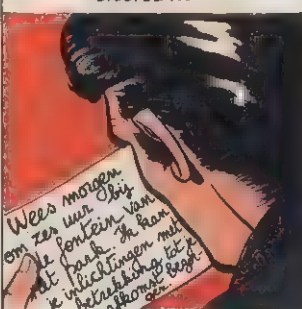 Wees morgen
om zes uur bij
de fontein van
het park. Ik kan
je inlichtingen met
betrekking tot je
afkomst bezor-
gen.